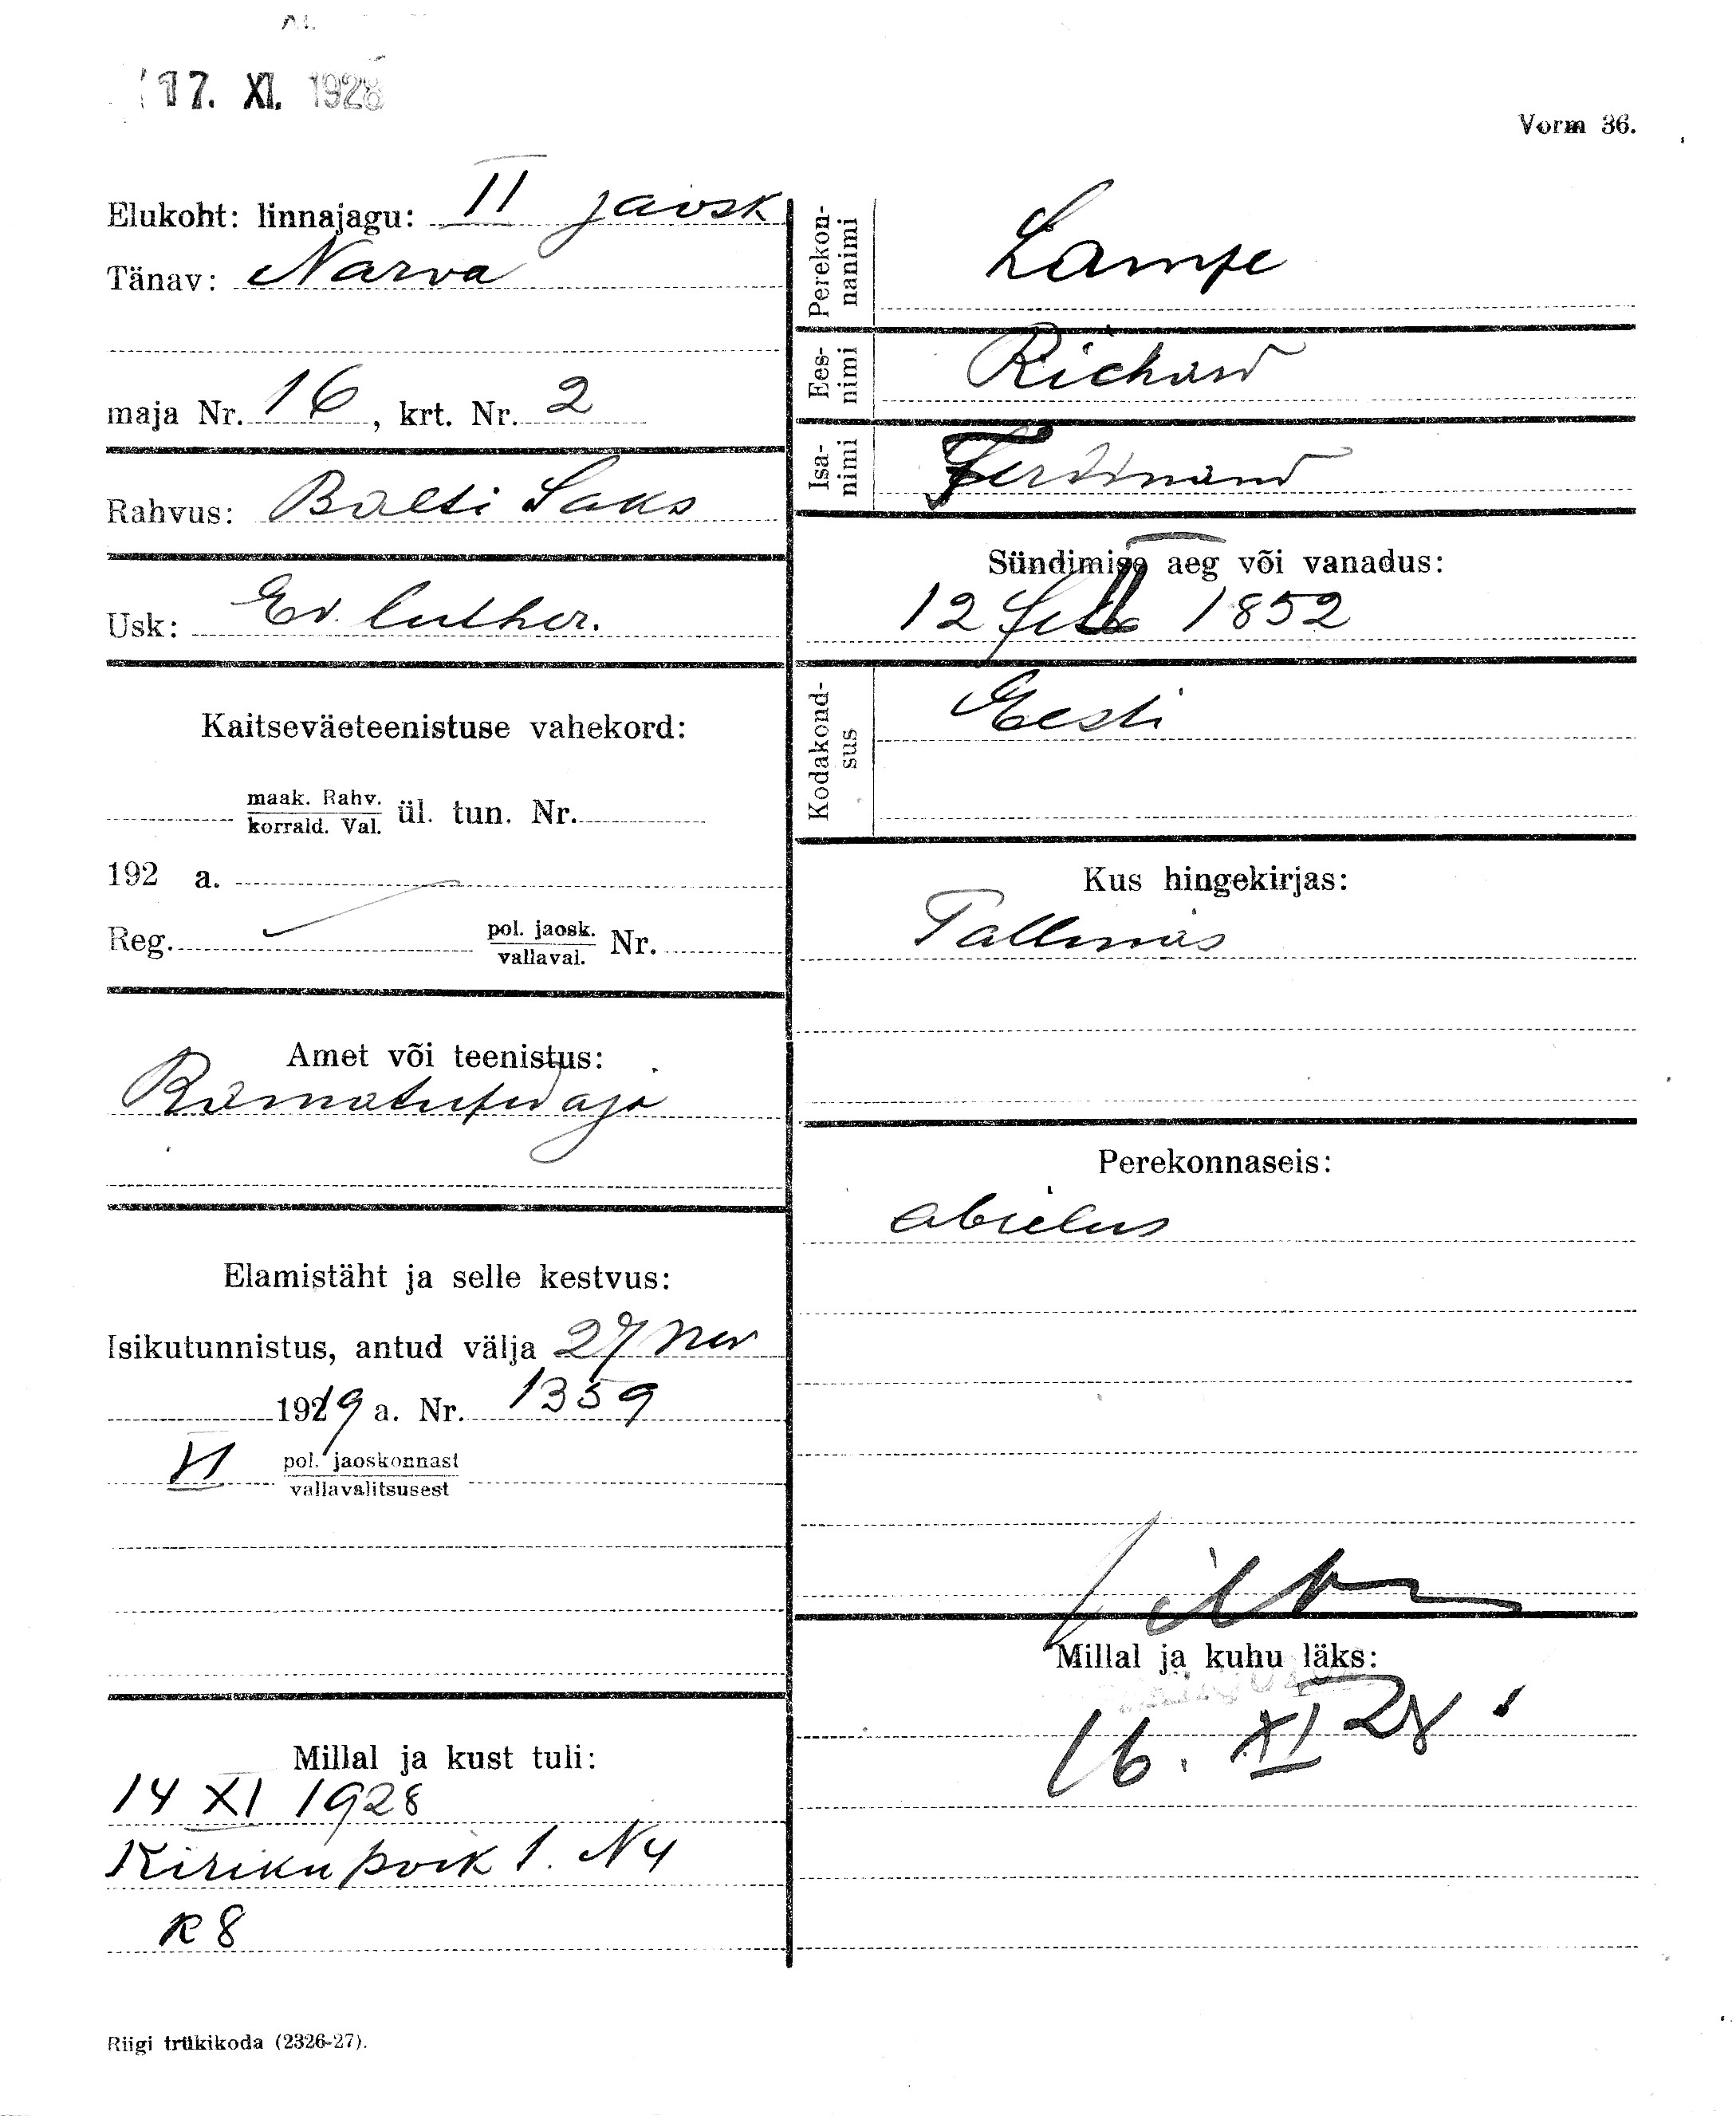 17. XI. 1928
Vorm 36.
Elukoht: linnajagu: II jaosk
Tänav: Narva
maja Nr. 16, krt. Nr. 2
Rahvus: Balti Saks
Usk: Ev. luther.
Kaitseväeteenistuse vahekord:
maak. Rahv.
korrald. Val. ül. tun. Nr.
192 a.
Reg. pol. jaosk.
vallaval. Nr.
Amet või teenistus:
Ramatupidaja
Elamistäht ja selle kestvus:
Isikutunnistus, antud välja 27 nov
1919 a. Nr. 1359
VI pol. jaoskonnast
vallavalitsusest
Millal ja kust tuli:
14 XI 1928
Kiriku poik 1. N 4
k 8
Perekonnanimi
Lampe
Eesnimi
Richard
Isanimi
Ferdinand
Sündimise aeg või vanadus:
12 1852
Kodakondsus
Eesti
Kus hingekirjas:
Tallinnas
Perekonnaseis:
abielus
Millal ja kuhu läks:
16. XI 28
Riigi trükikoda (2326-27).